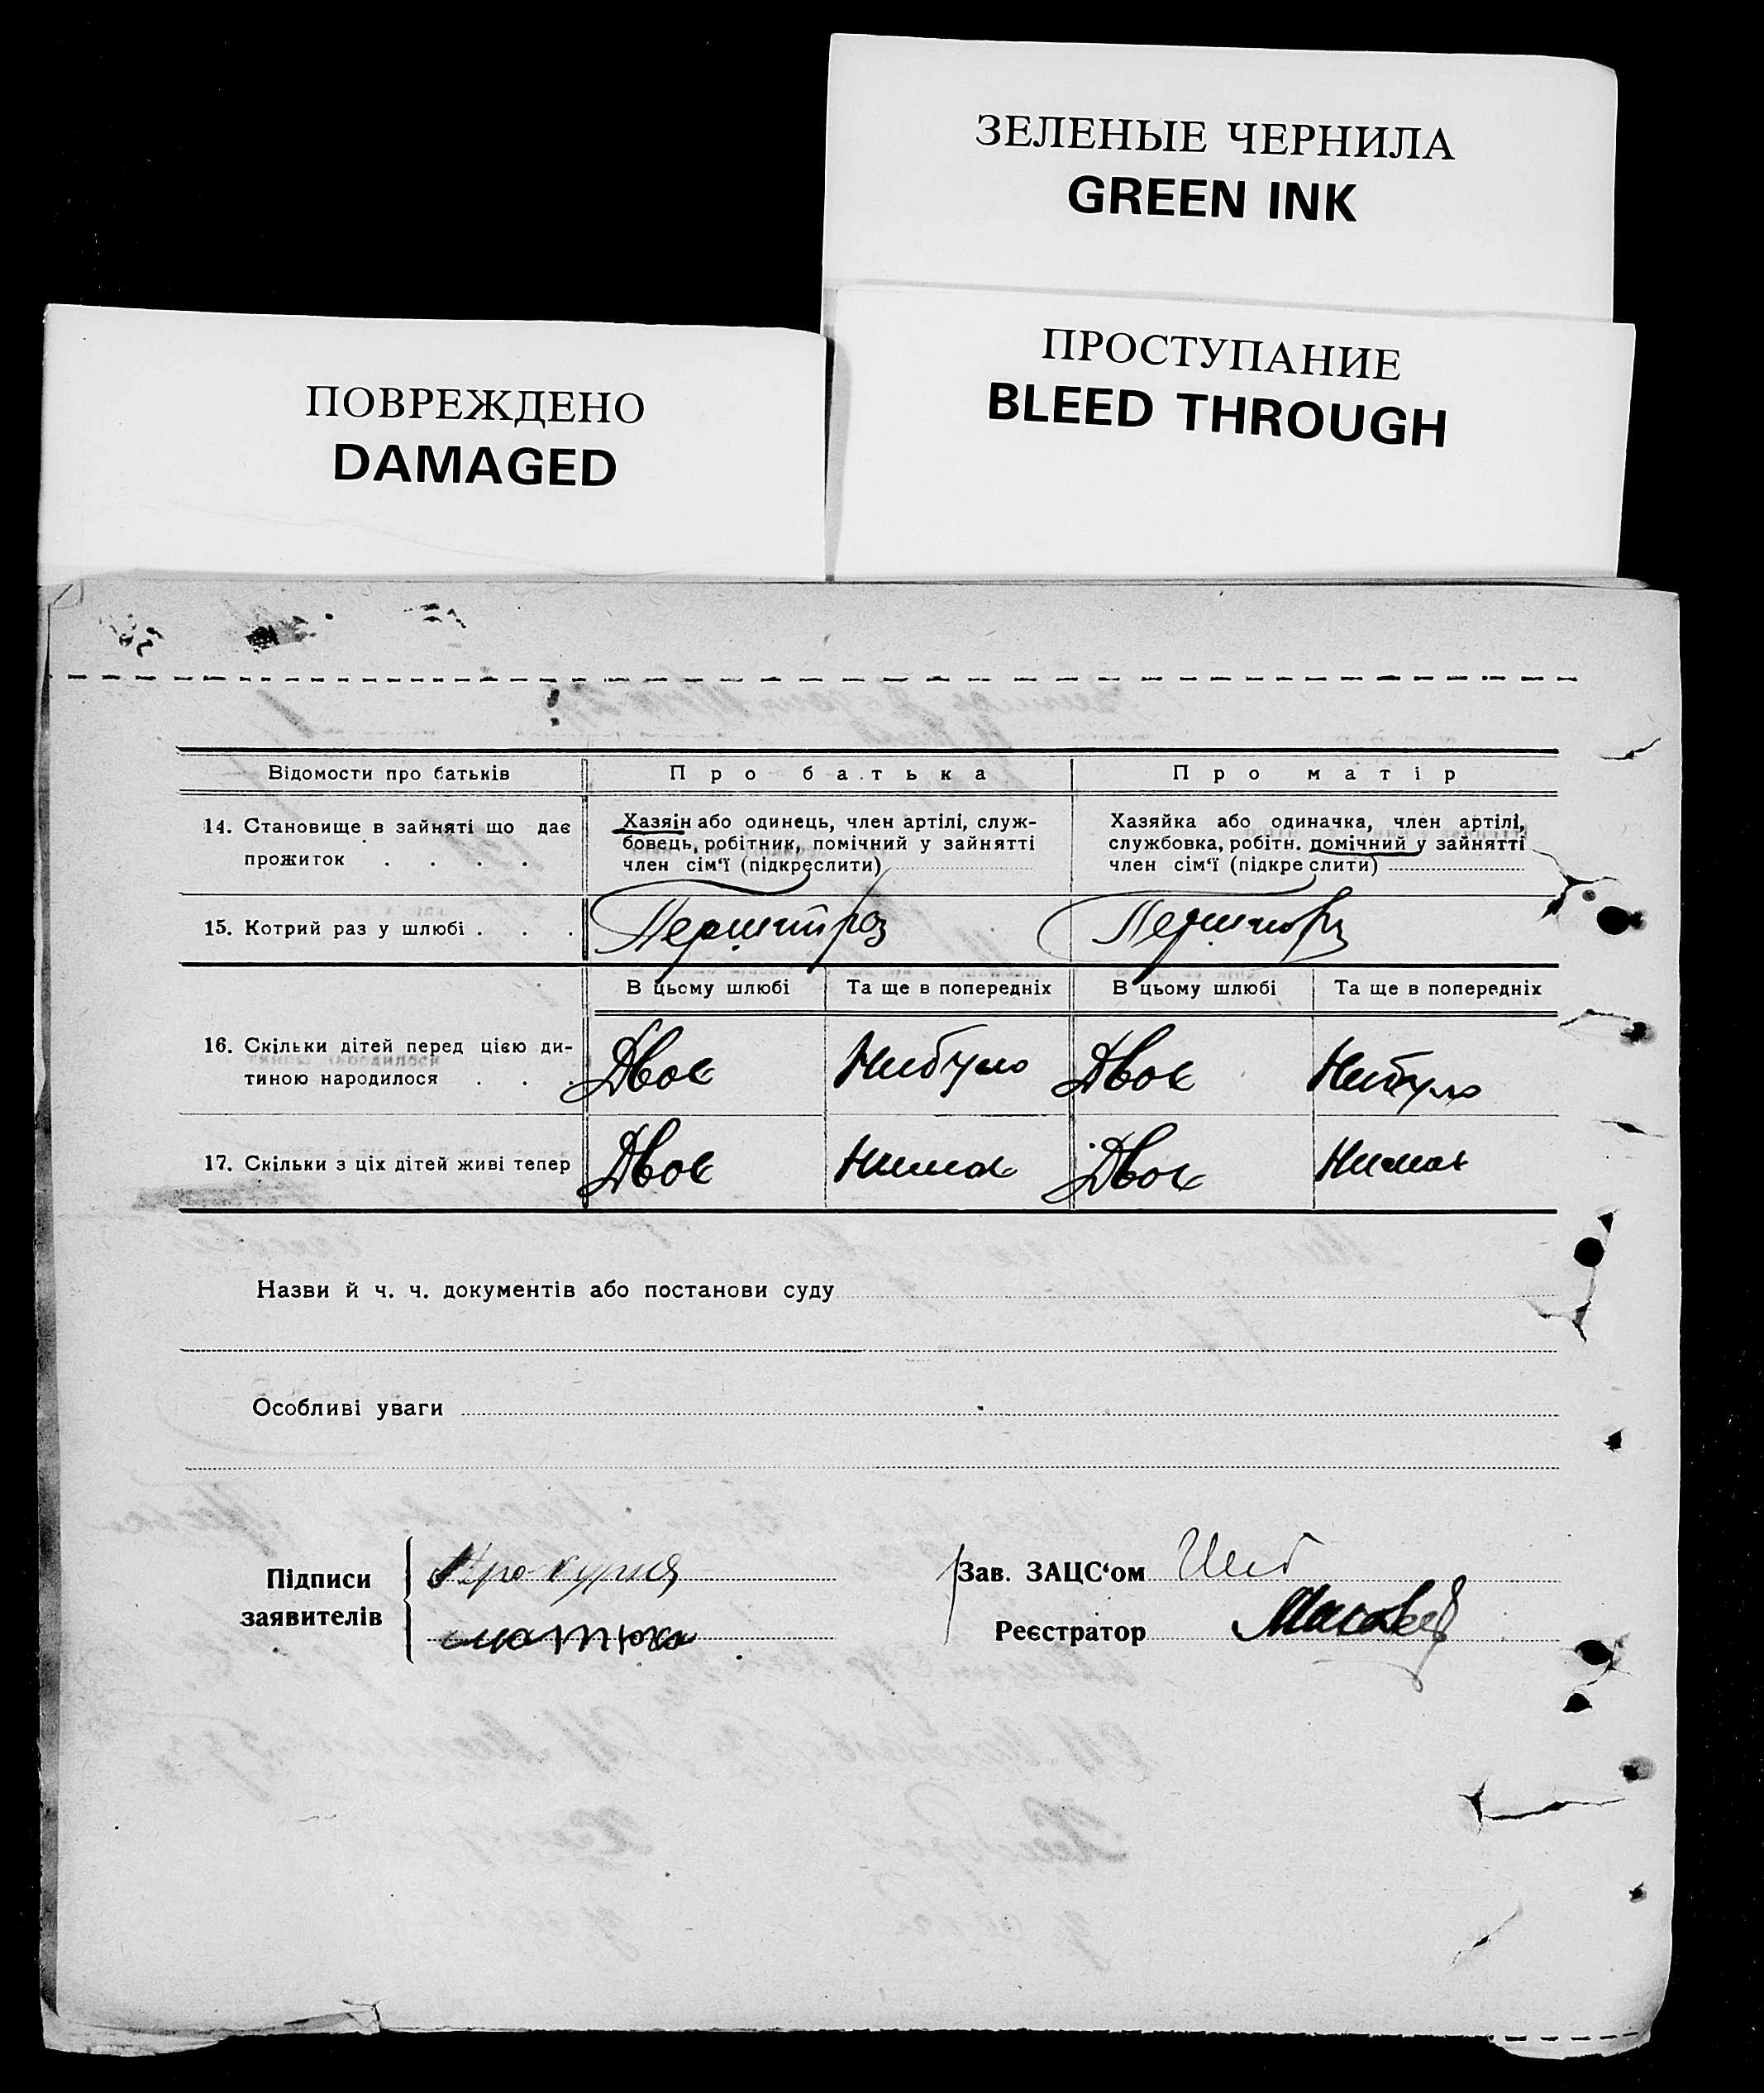 ЗЕЛЕНЫЕ ЧЕРНИЛА
GREEN INK
ПРОСТУПАНИЕ
BLEED THROUGH
ПОВРЕЖДЕНО
DAMAGED
Відомости про батьків
Про батька
Про матір
14. Становище в зайняті що дає
прожиток . . . .
Хазяїн або одинець, член артілі, служ-
бовець, робітник, помічний у зайнятті
член сім'ї (підкреслити)
Хазяйка або одиначка, член артілі,
службовка, робітн. помічний у зайнятті
член сім'ї (підкреслити)
15. Котрий раз у шлюбі . . .
Перший раз
Перший раз
В цьому шлюбі
Та ще в попередніх
В цьому шлюбі
Та ще в попередніх
16. Скільки дітей перед цією ди-
тиною народилося . . .
Двоє
Небуло
Двоє
Небуло
17. Скільки з ціх дітей живі тепер
Двоє
Нимає
Двоє
Нимає
Назви й ч. ч. документів або постанови суду
Особливі уваги
Підписи
заявителів
Зав. ЗАЦС'ом
Реєстратор